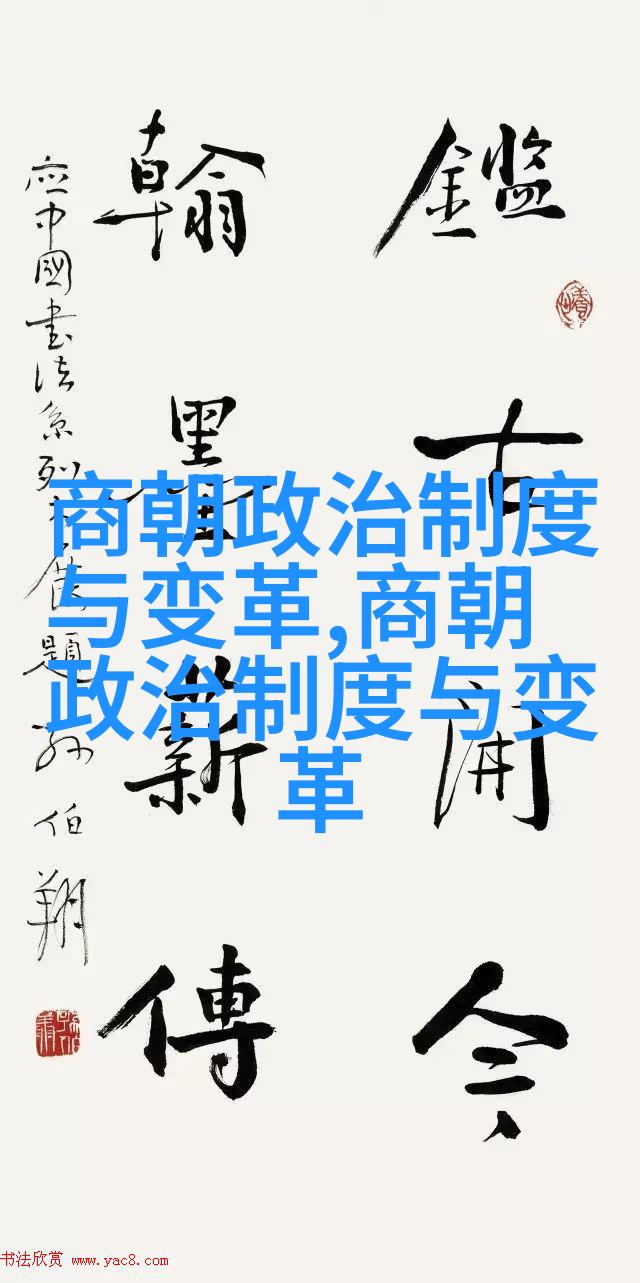 鑑古開今
翰墨薪傳
應中國書法系列
題 孫伯翔
商朝政治制度
与变革,商朝
政治制度与变
革
书法欣赏 www.yac8.com